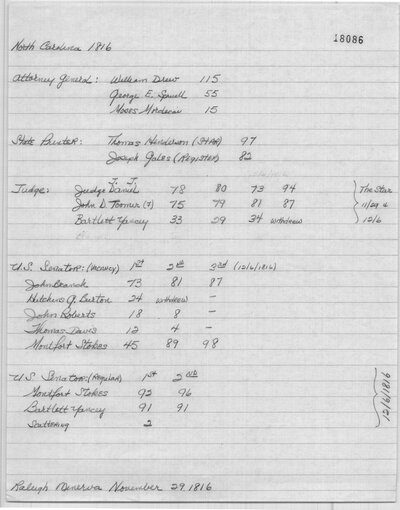 18086
North Carolina 1816
Attorney General: William Drew 115
George E. Spruell 55
Moses Mordecai 15
State Printer: Thomas Henderson (STAR) 97
Joseph Gales (REGISTER) 82
Judge: Judge Daniel 78 80 73 94
John D. Toomer (?) 75 79 81 87
Bartlett Yancey 33 29 34 withdrew
The Star
11/29 &
12/6
U.S. Senator: (VACANCY) 1st 2nd 3rd (12/6/1816)
John Branch 73 81 87
Hutchins G. Burton 24 withdrew -
John Roberts 18 8 -
Thomas Davis 12 4 -
Montfort Stokes 45 89 98
U.S. Senator: (Regular) 1st 2nd
Montfort Stokes 92 96
Bartlett Yancey 91 91
Scattering 2
12/6/1816
Raleigh Minerva November 29, 1816